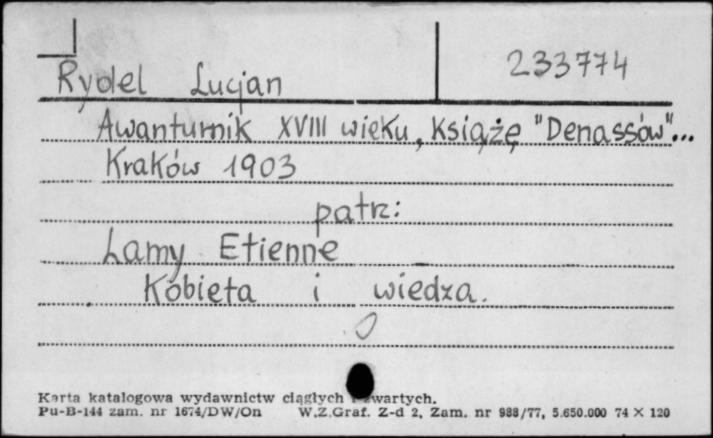 Rydel Lucjan
233774
Awanturnik XVIII wieku, książę "Denassów"...
Kraków 1903
patrz:
Lamy Etienne
Kobieta i wiedza.
Karta katalogowa wydawnictw ciągłych i zwartych.
Pu-B-144 zam. nr 1674/DW/On W.Z.Graf. Z-d 2, Zam. nr 988/77, 5.650.000 74 × 120